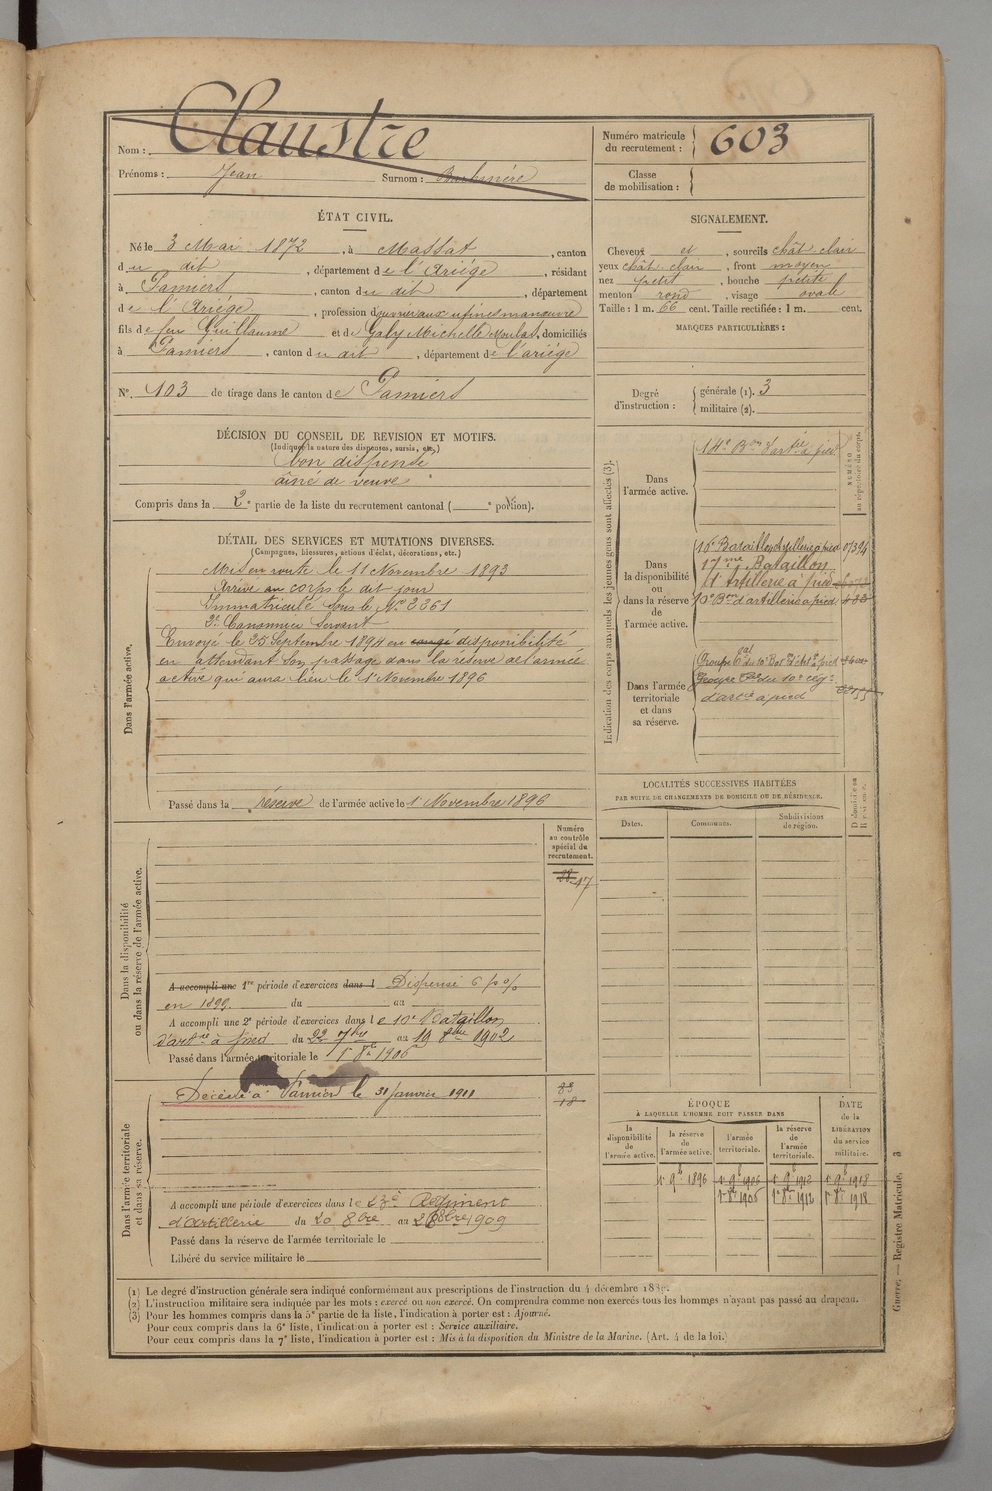 Nom : Claustre
Prénoms : Jean Surnom :
Numéro matricule du recrutement : 603
Classe de mobilisation :
ÉTAT CIVIL.
Né le 3 Mai 1872, à Massat, canton
du dit, département de l'Ariége, résidant
à Pamiers, canton du dit, département
de l'Ariége, profession d'ouvrier aux usines manœuvre
fils de feu Guillaume et de Galy Michelle Moulas, domiciliés
à Pamiers, canton du dit, département de l'ariége
N° 103 de tirage dans le canton de Pamiers
SIGNALEMENT.
Cheveux et, sourcils chât. clair
yeux chât. clair, front moyen
nez petit, bouche petite
menton rond, visage ovale
Taille : 1 m. 66 cent. Taille rectifiée : 1 m. cent.
MARQUES PARTICULIÈRES :
Degré d'instruction : générale (1). 3
militaire (2).
DÉCISION DU CONSEIL DE REVISION ET MOTIFS.
(Indiquer la nature des dispenses, sursis, etc.)
bon dispensé
aîné de veuve
Compris dans la 2e partie de la liste du recrutement cantonal ( e portion).
DÉTAIL DES SERVICES ET MUTATIONS DIVERSES.
(Campagnes, blessures, actions d'éclat, décorations, etc.)
Dans l'armée active.
Mis en route le 11 Novembre 1893
Arrivé au corps le dit jour
Immatriculé sous le N° 2361
2e Canonnier Servant
Envoyé le 25 Septembre 1894 en congé disponibilité
en attendant son passage dans la réserve de l'armée
active qui aura lieu le 1r Novembre 1896
Passé dans la réserve de l'armée active le 1 Novembre 1896
Indication des corps auxquels les jeunes gens sont affectés (3).
NUMÉRO au répertoire du corps.
Dans l'armée active.
Dans la disponibilité ou dans la réserve de l'armée active.
10e Bataillon Artillerie à pied
17me Bataillon
d'Artillerie à pied
10e Bon d'artillerie à pied
Dans l'armée territoriale et dans sa réserve.
d'artie à pied
LOCALITÉS SUCCESSIVES HABITÉES
PAR SUITE DE CHANGEMENTS DE DOMICILE OU DE RÉSIDENCE.
Dates. Communes. Subdivisions de région.
Dans la disponibilité ou dans la réserve de l'armée active.
Numéro au contrôle spécial du recrutement.
47
A accompli une 1re période d'exercices dans l Dispensé 6 p %
en 1899. du au
A accompli une 2e période d'exercices dans le 10e Bataillon
d'artrie à pied du 22 7bre au 19 8bre 1902
Passé dans l'armée territoriale le 1r 8bre 1906
Dans l'armée territoriale et dans sa réserve.
Décédé à Pamiers le 31 Janvier 1911
A accompli une période d'exercices dans le 23e Régiment
d'Artillerie du 20 8bre au 28 8bre 1909
Passé dans la réserve de l'armée territoriale le
Libéré du service militaire le
ÉPOQUE
À LAQUELLE L'HOMME DOIT PASSER DANS
la disponibilité de l'armée active.
la réserve de l'armée active.
l'armée territoriale.
la réserve de l'armée territoriale.
DATE de la LIBÉRATION du service militaire.
1r 9b 1896 1r 9b 1906 1r 9b 1912 1r 9b 1918
1r 8b 1906 1r 8b 1912 1r 8b 1918
(1) Le degré d'instruction générale sera indiqué conformément aux prescriptions de l'instruction du 4 décembre 1889.
(2) L'instruction militaire sera indiquée par les mots : exercé ou non exercé. On comprendra comme non exercés tous les hommes n'ayant pas passé au drapeau.
(3) Pour les hommes compris dans la 5e partie de la liste, l'indication à porter est : Ajourné.
Pour ceux compris dans la 6e liste, l'indication à porter est : Service auxiliaire.
Pour ceux compris dans la 7e liste, l'indication à porter est : Mis à la disposition du Ministre de la Marine. (Art. 4 de la loi.)
Guerre. — Registre Matricule.